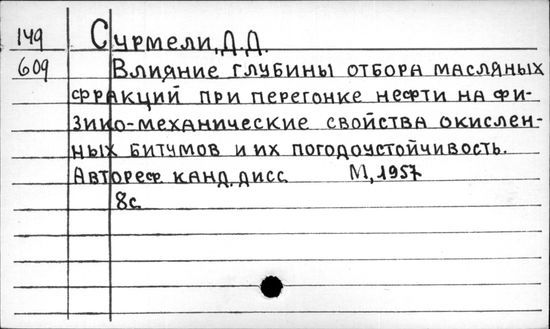 149 Сурмели, Д.Д.
609 Влияние глубины отбора масляных
фракций при перегонке нефти на фи-
зико-механические свойства окислен-
ных битумов и их погодоустойчивость.
Автореф. канд. дисс. М, 1957
8с.